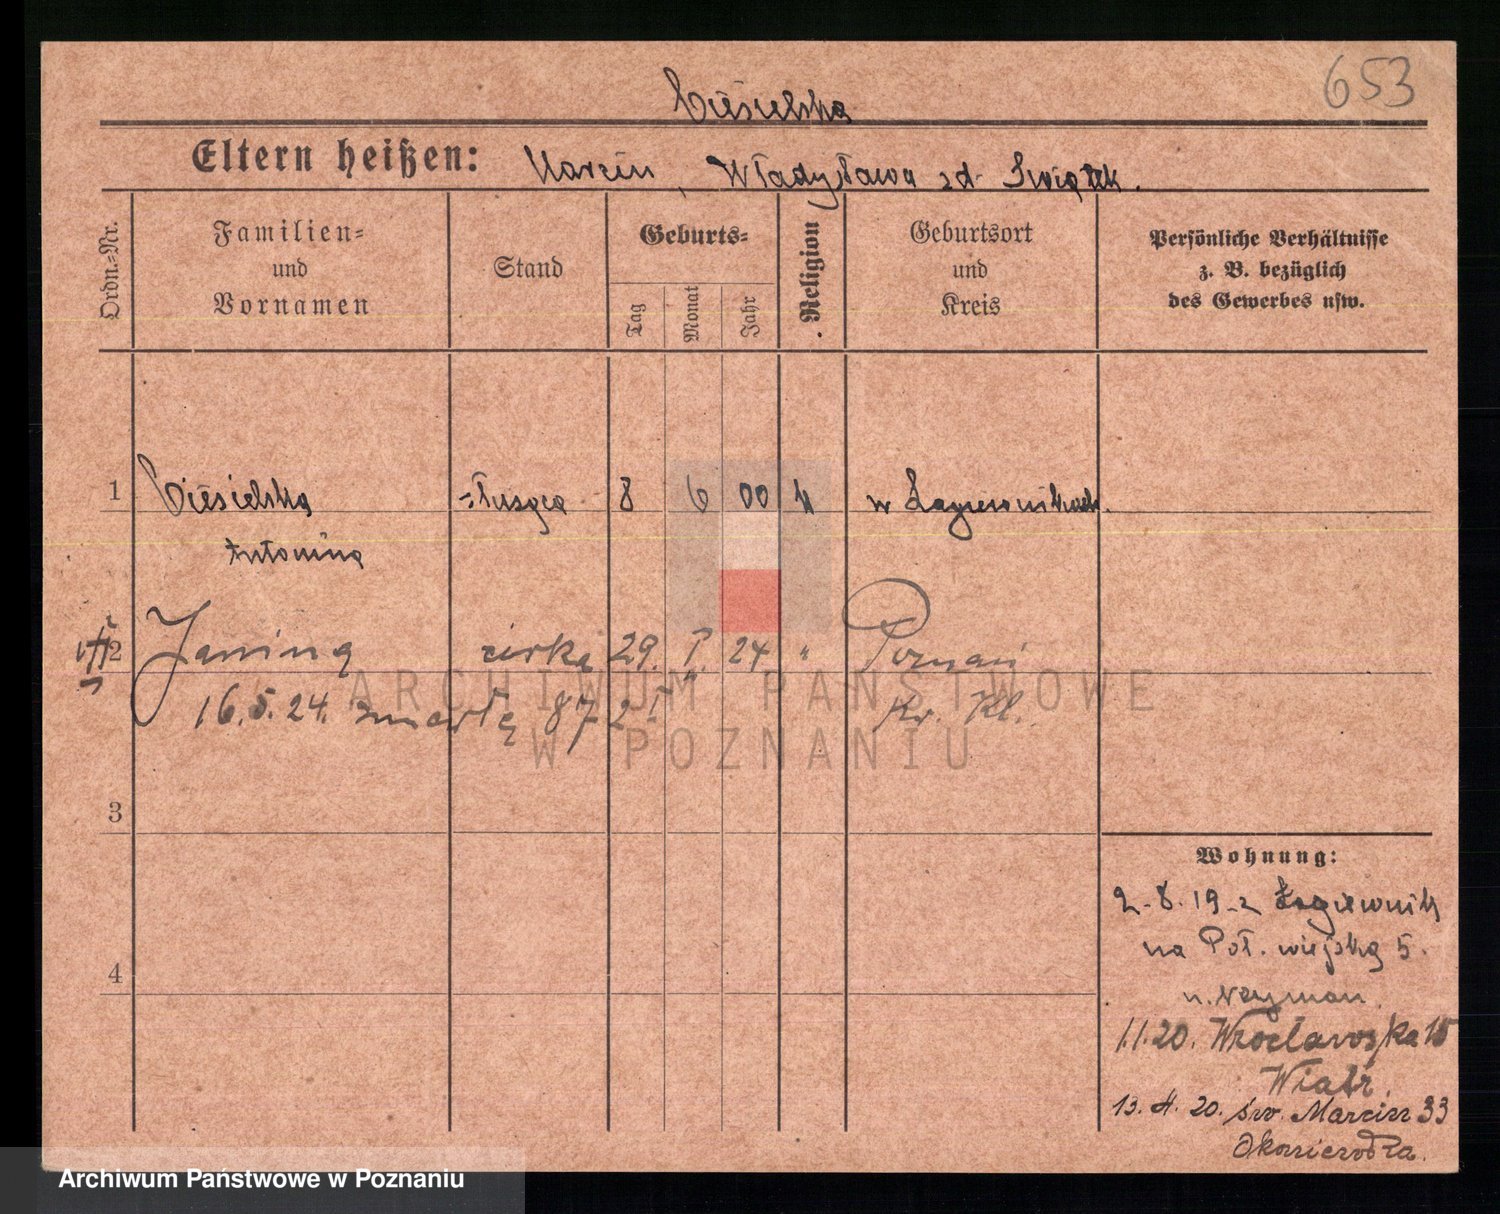 653
Ciesielska
Eltern heißen: Marcin, Władysława zd. Świątek.
Ordn.-Nr.
Familien- und Vornamen
Stand
Geburts-
Tag
Monat
Jahr
Religion
Geburtsort und Kreis
Persönliche Verhältnisse
z. B. bezüglich
des Gewerbes usw.
1 Ciesielska służąca 8 6 00 k w Łagiewnikach.
Antonina
2 Janina córka 29. I. 24 " Poznań
16.5.24. zmarła 87 Kr. Kl.
3
4
Wohnung:
2.8.19 z Łagiewnik
na Poł. wiejską 5.
1.1.20. Wrocławska 15
Wiatr.
13. 4. 20. św. Marcin 33
ARCHIWUM PAŃSTWOWE
W POZNANIU
Archiwum Państwowe w Poznaniu